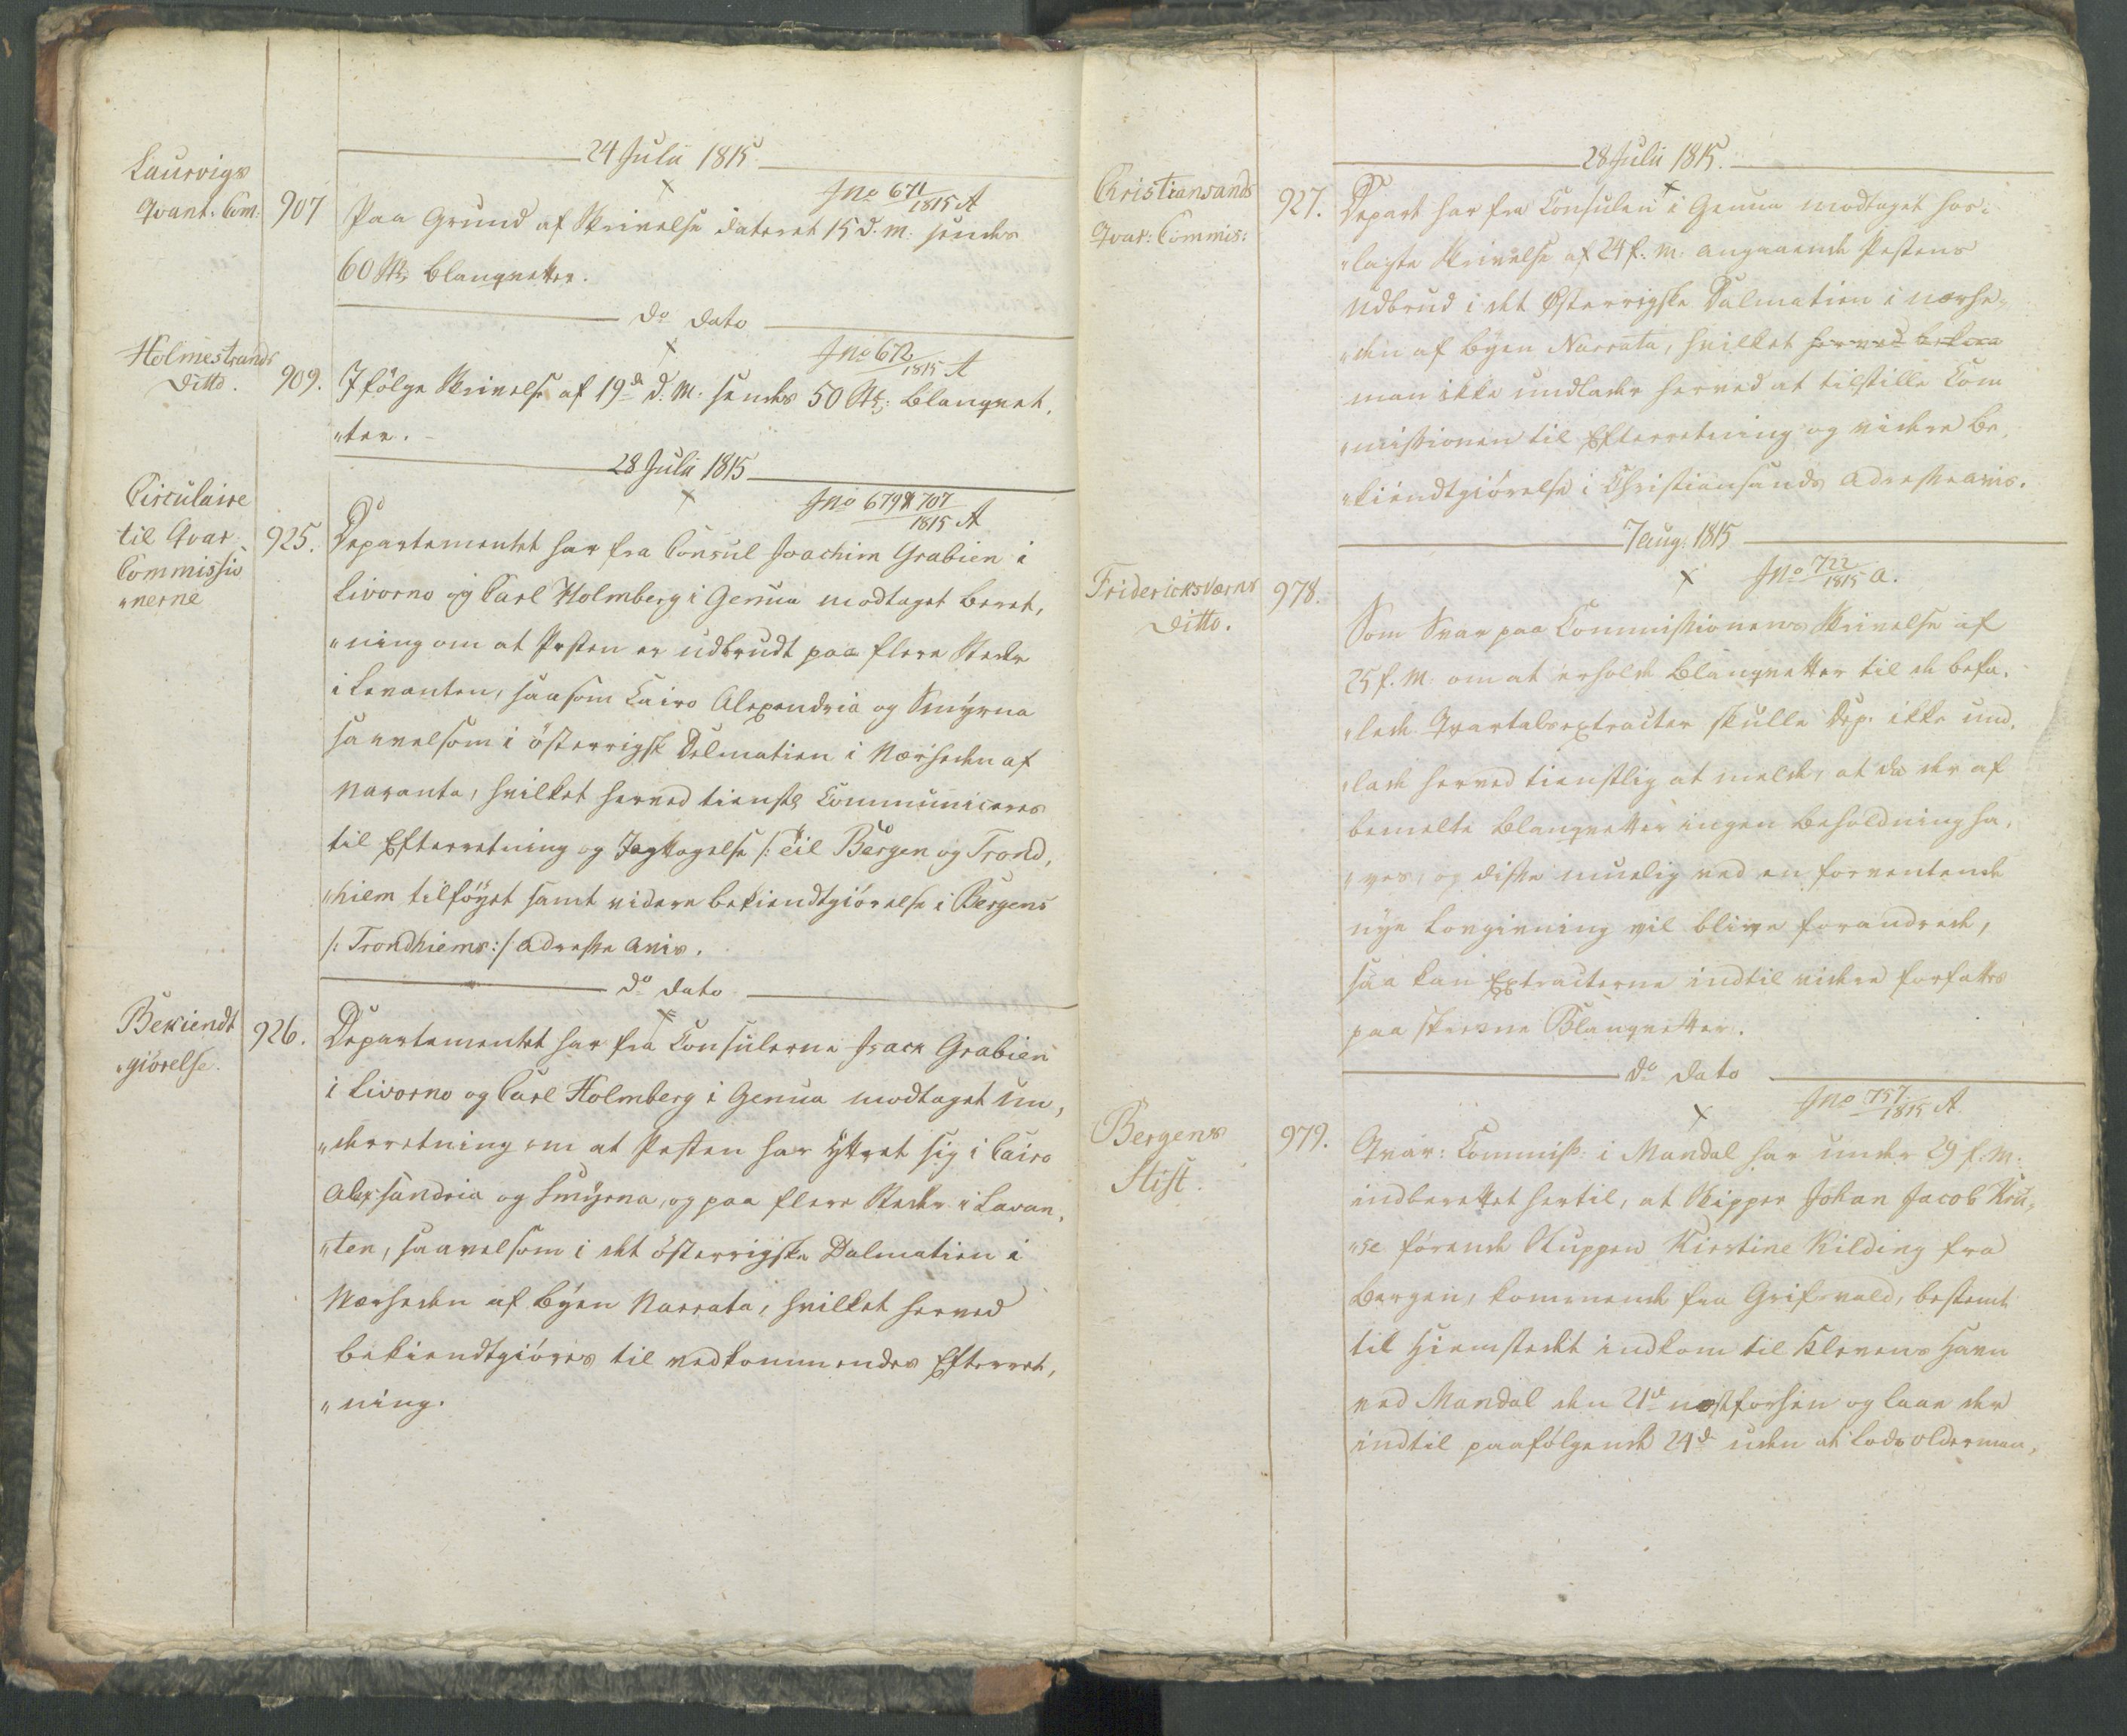 24 Julii 1815.
Laurvigs
Qvant. Com: 907
Jno 671/1815 A
Paa Grund af Skrivelse dateret 15 d. M. sendes
60 Stk blanqvetter.
do dato
Holmestrands
Ditto. 909.
Jno 672/1815 A
Ifölge Skrivelse af 19de d. M. sendes 50 Stk: Blanqvet,
"ter.
28 Julii 1815
Circulaire
til Qvar:
Commissio
"nerne
925.
Jno 679 & 707/1815 A
Departementet har fra Consul Joachim Grabien i
Livorno og Carl Holmberg i Genua modtaget beret,
"ning om at Pesten er udbrudt paa flere Steder
i Levanten, saasom Cairo Alexandria og Smÿrna
saavelsom i österrigsk Dalmatien i Nærheden af
Naranta, hvilket herved tienstl Communiceres
til Efterretning og Jagttagelse /: til Bergen og Trond,
"hiem tilföÿet samt videre bekiendtgiörelse i Bergens
/: Trondhiems :/ Adresse Avis.
do dato
Bekiendt
"giörelse.
926.
Departementet har fra Consulerne Grabien
i Livorno og Carl Holmberg i Genua modtaget Un,
"derretning om at Pesten har ÿttret sig i Cairo
Alexsandria og Smÿrna, og paa flere Steder i Levan,
"ten, saavelsom i det österrigske Dalmatien i
Nærheden af Bÿen Narrata, hvilket herved
bekiendtgiöres til vedkommendes Efterret,
"ning.
28 Julii 1815.
Christiansands
Qvar: Commis:
927.
Depart har fra Consulen i Genua modtaget hos:
"lagte Skrivelse af 24 f. M. angaaende Pestens
Udbrud i det Österrigske Dalmatien i nærhe,
"den af bÿen Narrata, hvilket herved bekien
man ikke undlader herved at tilstille Com
"missionen til Efterretning og videre be,
"kiendtgiörelse i Christiansands Adresseavis.
7 Aug: 1815
Fridericksværns
Ditto.
978.
Jno 722/1815 a.
Som Svar paa Commissionens Skrivelse af
25 f. M. om at erholde Blanqvetter til de befa,
"lede Qvartalsextracter skulle Dep. ikke und,
"lade herved tienstlig at melde, at da der af
bemelte Blanqvetter ingen beholdning ha,
"ves, og disse muelig ved en forventende
nÿe Lovgivning vil blive forandrede,
saa kan Extracterne indtil videre forfattes
paa skrevne Blanqvetter.
do dato
Bergens
Stift.
979.
Jno 757/1815 A.
Qvar: Commiss: i Mandal har under 29 f. M.
indberettet hertil, at Skipper Johan Jacob Kru,
"se förende Sluppen Kirstine Kilding fra
Bergen, kommende fra Grifsvald, bestemt
til Hiemstedet indkom til Klevens Havn
ved Mandal den 21d næstforhen og laae der
indtil paafölgende 24d uden at Lods Oldermæn,